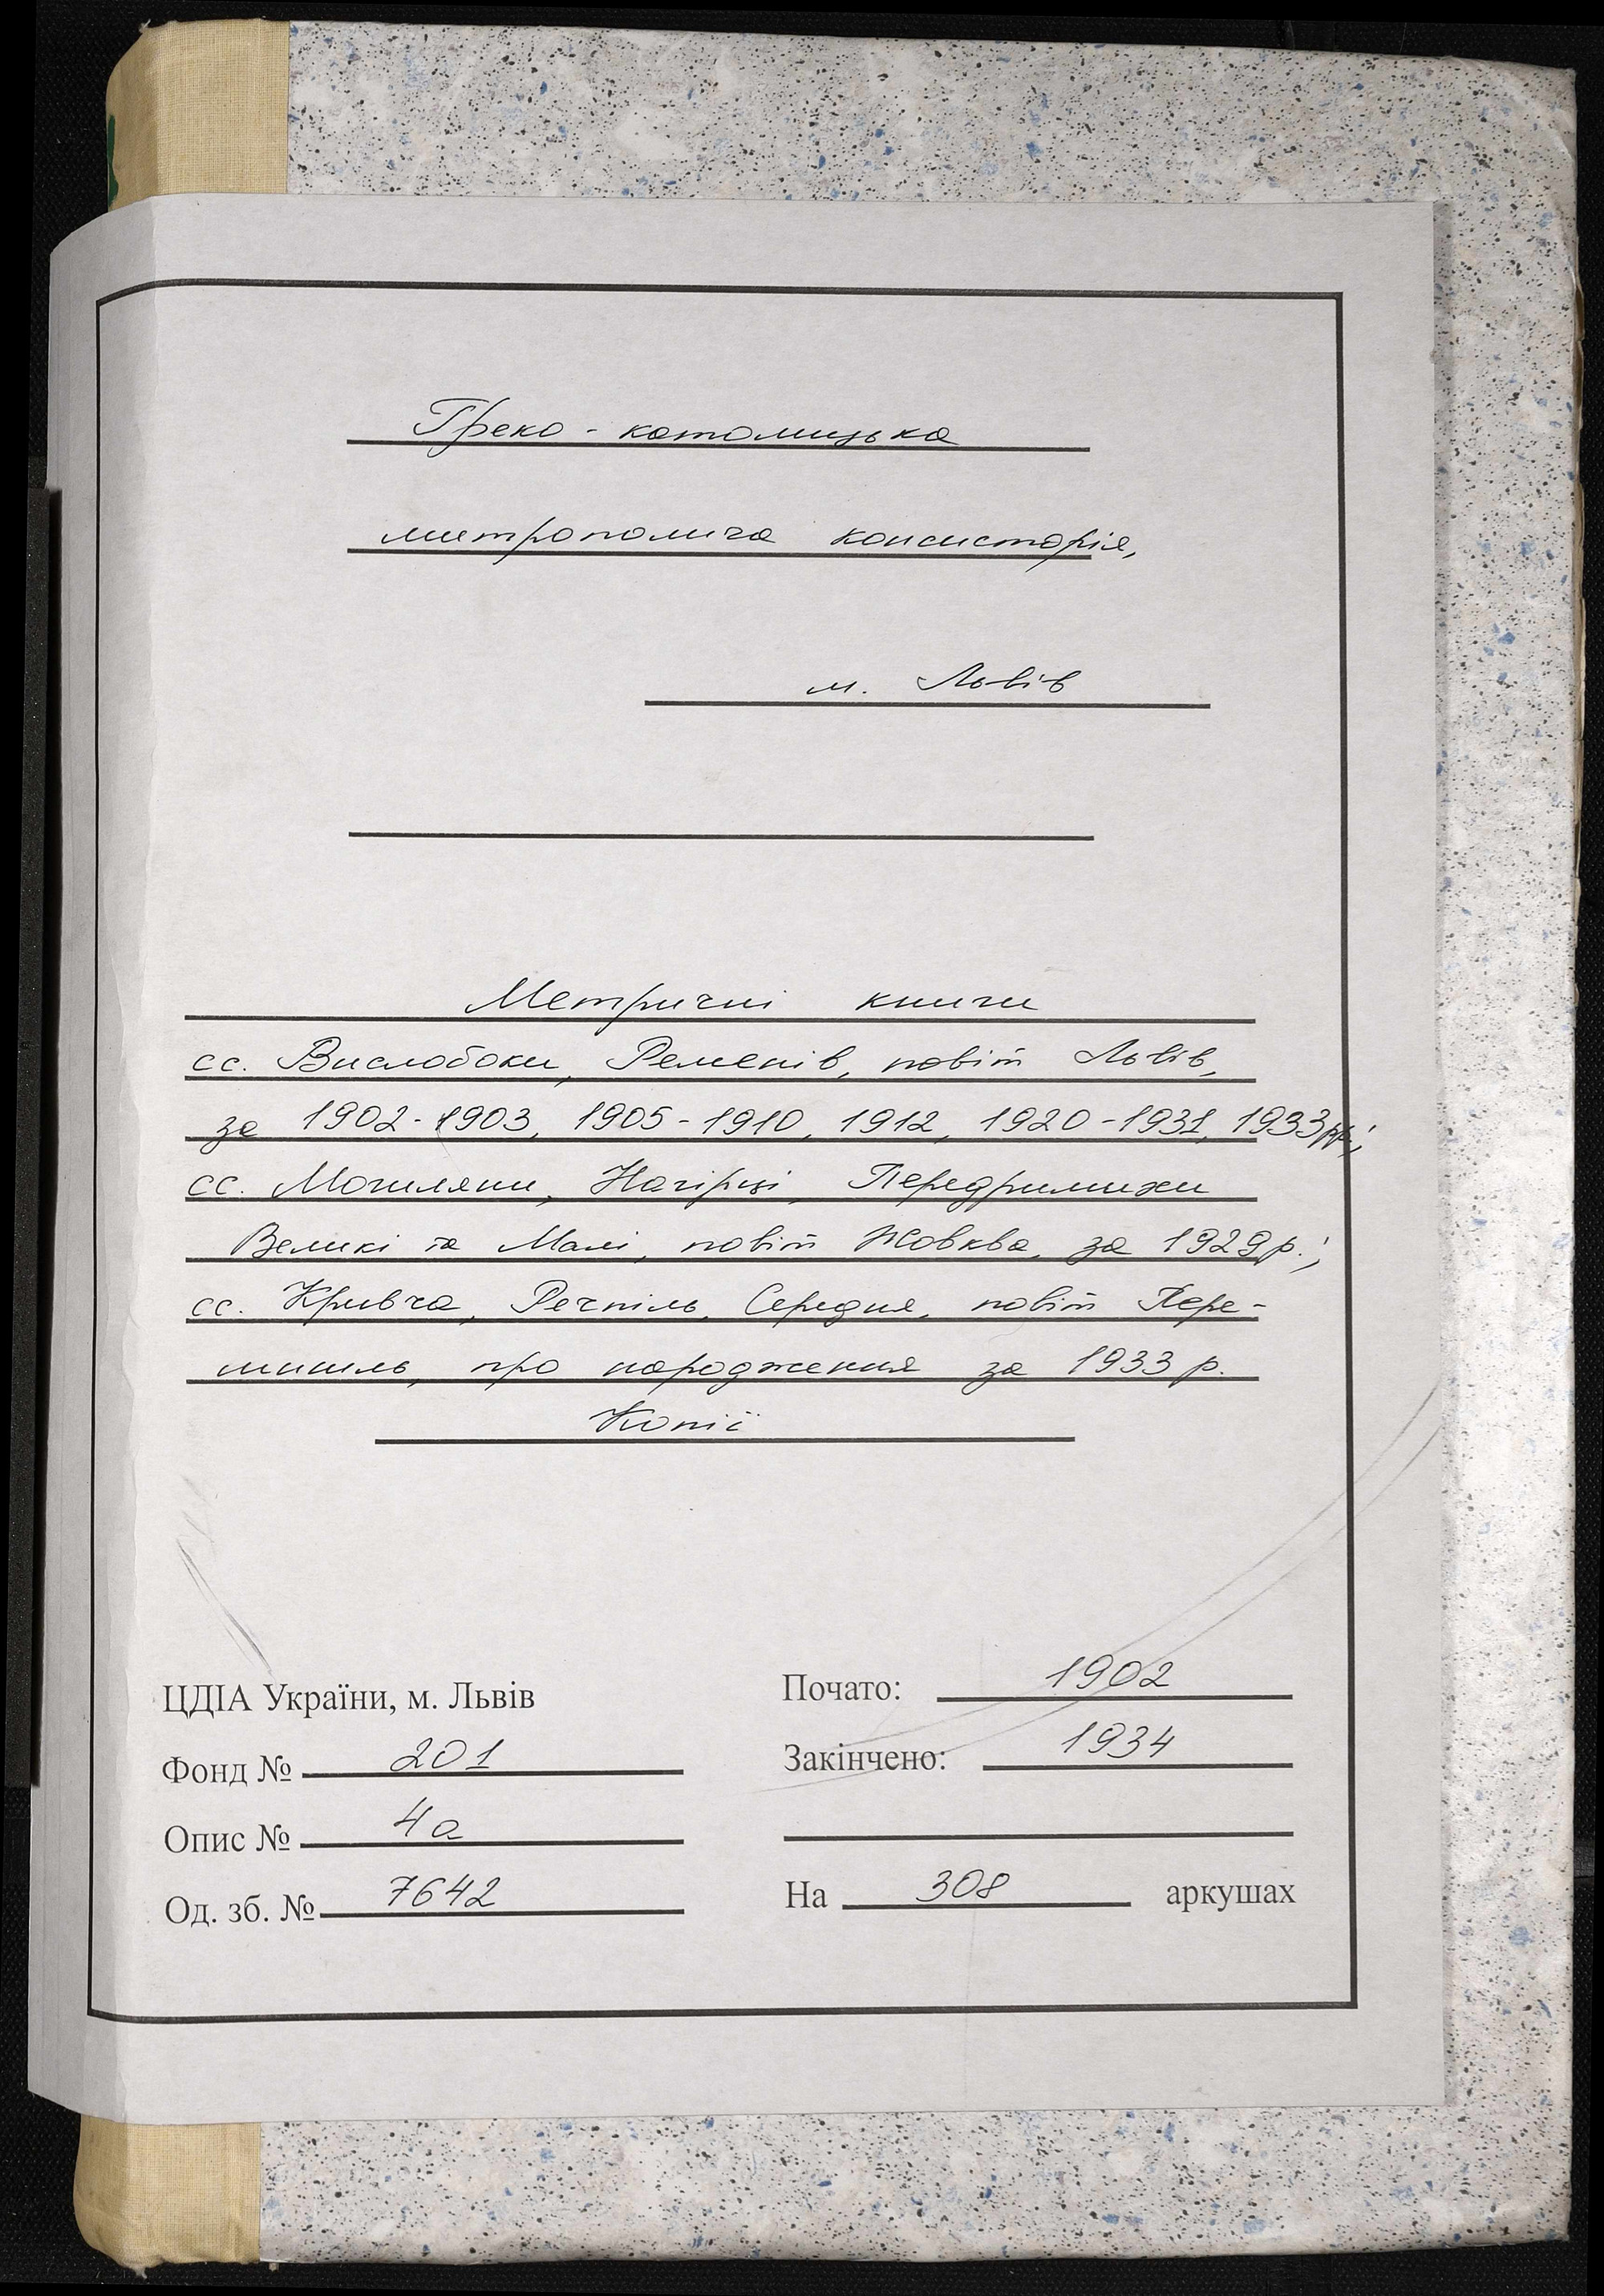 Греко - католицька
митрополича консисторія,
м. Львів
Метричні книги
сс. Вислобоки, Ременів, повіт Львів,
за 1902-1903, 1905-1910, 1912, 1920-1931, 1933рр.;
сс. Могиляни, Нагірці, Передримихи
Великі та Малі, повіт Жовква, за 1929р.;
сс. Кривча, Речпіль, Середня, повіт Пере-
мишль, про народження за 1933 р.
Копії
ЦДІА України, м. Львів
Фонд № 201
Опис № 4а
Од. зб. № 7642
Почато: 1902
Закінчено: 1934
На 308 аркушах